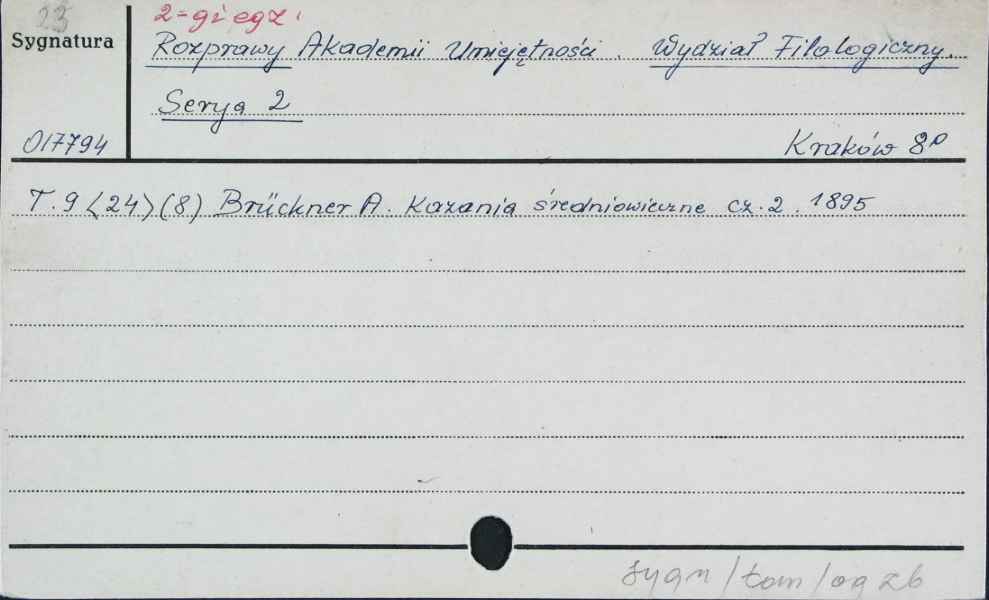 23
2-gi egz.
Sygnatura
Rozprawy Akademii Umiejętności. Wydział Filologiczny.
Serya 2
017794
Kraków 8º
T.9 <24> (8) Brückner A. Kazania średniowieczne cz. 2. 1895
sygn/tom/og zb